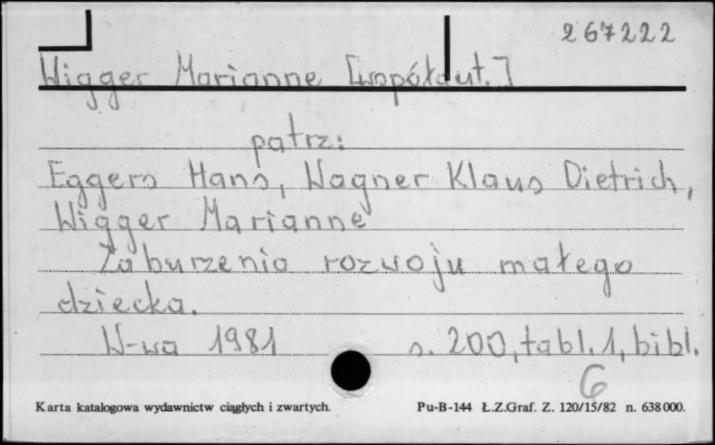 267222
Wigger Marianne [współaut.]
patrz:
Eggers Hans, Wagner Klaus Dietrich,
Wigger Marianne
Zaburzenia rozwoju małego
dziecka.
W-wa 1981 s. 200, tabl. 1, bibl.
6
Karta katalogowa wydawnictw ciągłych i zwartych. Pu-B-144 Ł.Z.Graf. Z. 120/15/82 n. 638000.